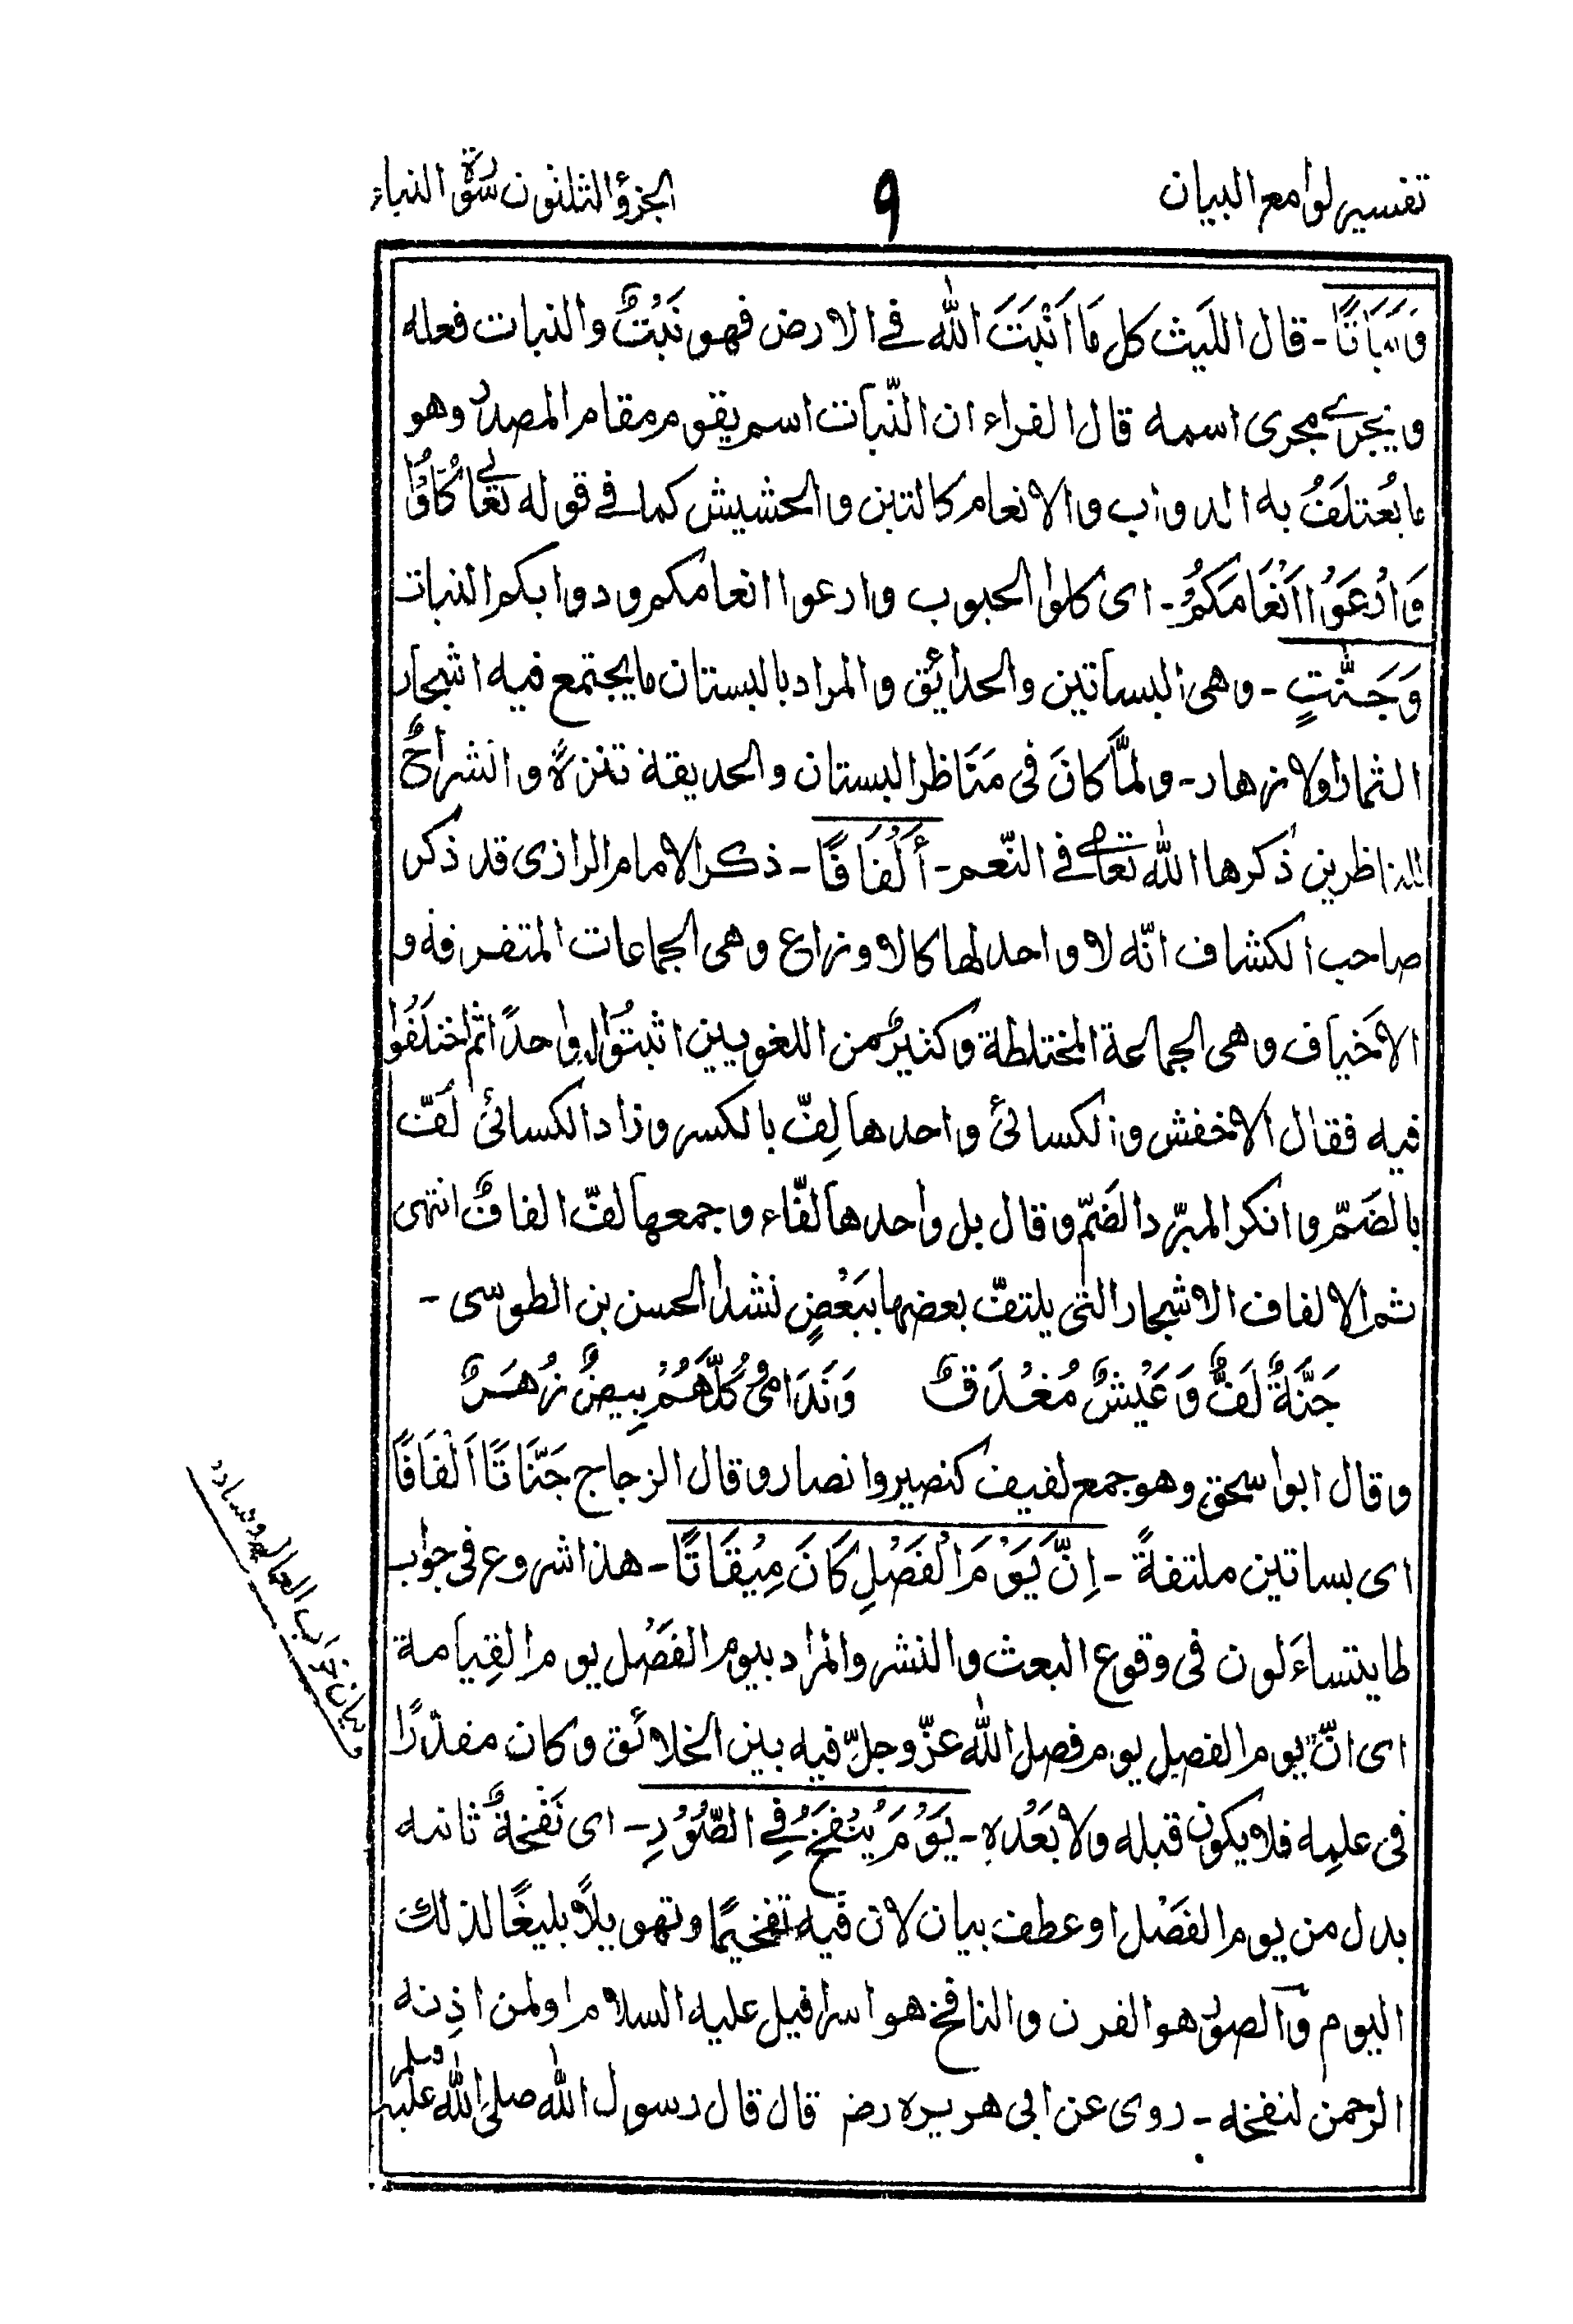 تفسير لوامع البيان
٩
الجزؤ الثلثون سورة النباء
وَنَبَاتًا - قال الليث كل مَا اَنْبَتَ الله فے الارض فهو نَبْتٌ والنبات فعله
ويجرے مجرى اسمه قال الفراء ان النّبات اسم يقوم مقام المصدر وهو
ما يُعتلَفُ به الدواب والانعام كالتبن والحشيش كما فے قوله تعالےٰ كُلُوْا
وَارْعَوْا اَنْعَامَكُمْ - اى كلوا الحبوب وارعوا انعامكم ودوابكم النبات
وَجَنّٰتٍ - وهى البساتين والحدائق والمراد بالبستان ما يجتمع فيه اشجار
الثمار اولا زهار - ولمَّا كانَ فى مَنَاظر البستان والحديقة تنزهٌ وانشراحٌ
للناظرين ذكرها الله تعالےٰ فے النّعم - اَلْفَافًا - ذكر الامام الرازى قد ذكر
صاحب الكشاف انّه لا واحد لها كالاوزاع وهى الجماعات المتفرقة و
الاَخياف وهى الجماعة المختلطة وكثيرٌ من اللغويين اثبتُوْا له واحدًا ثم اختلَفُوا
فيه فقال الاخفش والكسائئ واحدها لِفّ بالكسر وزاد الكسائئ لُفّ
بالضَمّ وانكر المبرّد الضَمّ وقال بل واحدها لفّاء وجمعها لفّ الفافٌ انتهى
ثم الالفاف الاشجار التى يلتفّ بعضها ببَعْضٍ نشدا الحسن بن الطوسى -
جَنَّةٌ لَفٌّ وَعَيْشٌ مُغْدَقٌ وَنَدَامىٰ كُلُّهُمْ بِيضٌ زُهَرٌ
وقال ابواسحق وهو جمع لفيف كنصير وانصار وقال الزجاج جَنَّاتًا اَلْفَافًا
اى بساتين ملتفةً - اِنَّ يَوْمَ الْفَصْلِ كَانَ مِيْقَاتًا - هذا شروع فى جواب
لما يتساءَلون فى وقوع البعث والنشر والمراد بيوم الفَصْل يوم القِيامة
اى انّ يوم الفصل يوم فصل الله عزّ وجلّ فيه بين الخلائق وكان مقدّرًا
فى علمِه فلا يكون قبله ولا بَعْدهِ - يَوْمَ يُنْفَخُ فِے الصُّوْرِ - اى نَفْخةٌ ثانيه
بدل من يوم الفَصْل او عطف بيان لان فيه تفخيمًا وتهويلًا بليغًا لذلك
اليوم والصور هو القرن والنافخ هو اسرافيل عليه السلام اولمن اذِنه
الرحمن لنفخه - روى عن ابى هريره رضـ قال قال رسول الله صلى الله عليه وسلم
بيان جواب العما